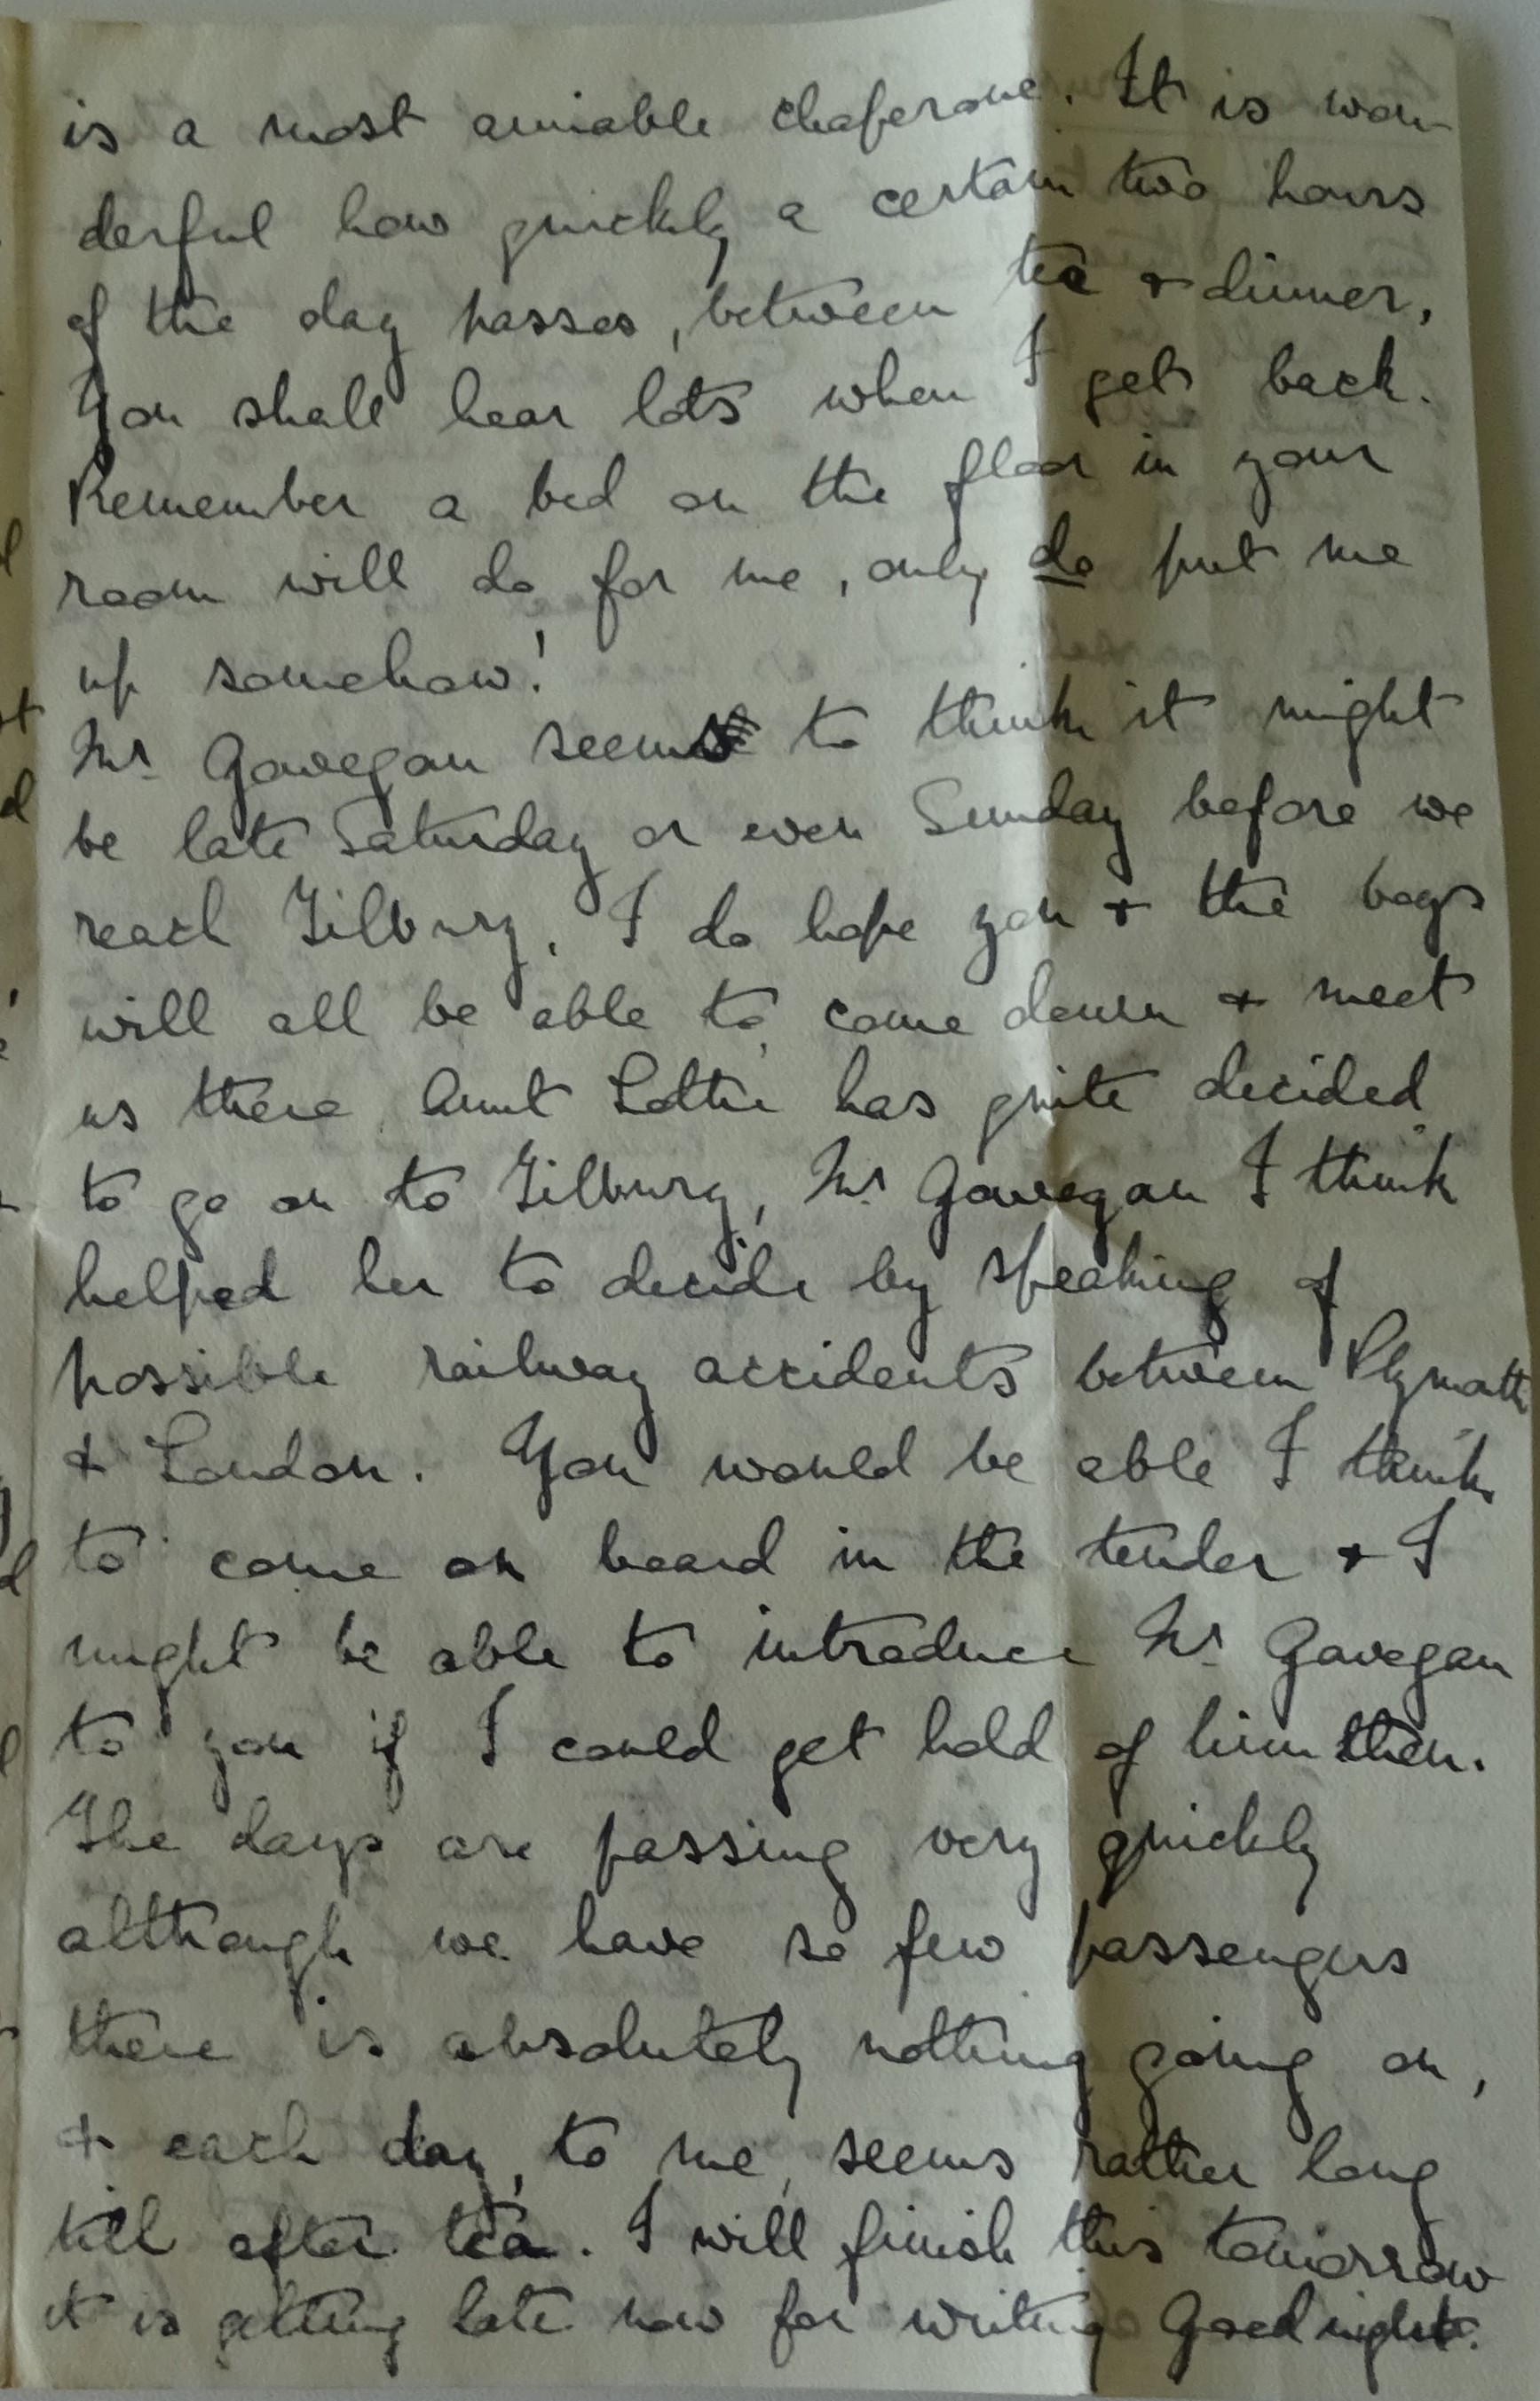 is a most amiable chaperone. It is won-
derful how quickly a certain two hours
of the day passes, between tea & dinner.
You shall hear lots when I get back.
Remember a bed on the floor in your
room will do for me, only do put me
up somehow!
Mr Gavegan seems to think it might
be late Saturday or even Sunday before we
reach Tilbury. I do hope you & the boys
will all be able to come down & meet
us there. Aunt Lottie has quite decided
to go on to Tilbury, Mr Gavegan I think
helped her to decide by speaking of
possible railway accidents between Plymouth
& London. You would be able I think
to come on board in the tender & I
might be able to introduce Mr Gavegan
to you if I could get hold of him then.
The days are passing very quickly
although we have so few passengers
there is absolutely nothing going on,
& each day, to me, seems rather long
till after tea. I will finish this tomorrow
it is getting late now for writing Good night.